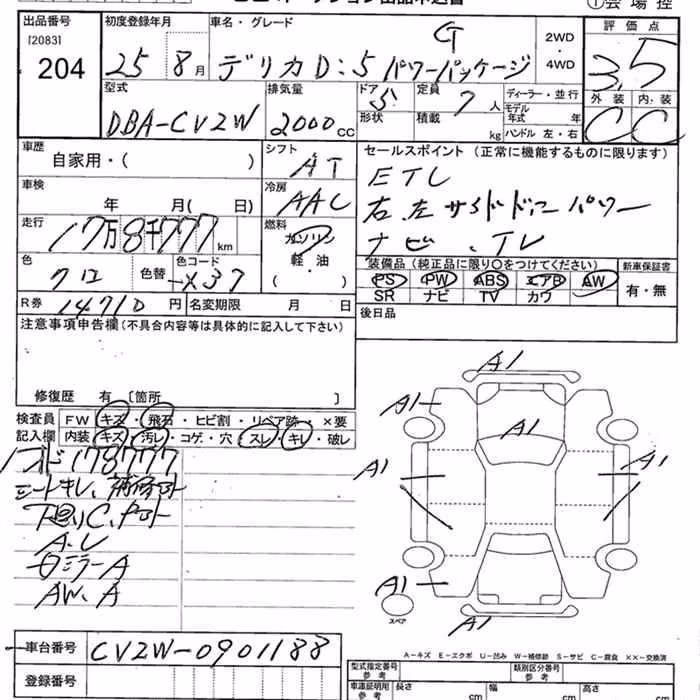 ①会場控
出品番号 初度登録年月 車名・グレード 評価点
[2083]
204 25 8月 デリカD:5 G パワーパッケージ 2WD・4WD 3.5
外装 内装
C C
型式 排気量 ドア 定員 ディーラー・並行
DBA-CV2W 2000cc 5 7人 モデル年式 年
形状 積載 kg ハンドル 左・右
車歴 シフト セールスポイント (正常に機能するものに限ります)
自家用・( ) AT ETC
車検 冷房 右、左サイドドアーパワー
年 月( 日) AAC ナビ、TV
走行 燃料
17万8千777km ガソリン
軽・油
( )
色 色替 色コード 装備品(純正品に限り○をつけてください) 新車保証書
クロ X37 PS PW ABS エアB AW 有・無
SR ナビ TV カワ
R券 14710円 名変期限 月 日 後日品
注意事項申告欄(不具合内容等は具体的に記入して下さい)
修復歴 有〔箇所 〕
検査員 FW キズ・飛石・ヒビ割・リペア跡・×要
記入欄 内装 キズ・汚レ・コゲ・穴・スレ・キレ・破レ
178777
シートキレ、補修ト
下廻りC、
A.U
ロミラーA
AW.A
A1
A1
A1
A1 A1
A1
A1
スペア
A−キズ E−エクボ U−凹み W−補修跡 S−サビ C−腐食 ××−交換済
車台番号 CV2W-0901188
登録番号
型式指定番号 参考 類別区分番号 参考
車庫証明用 参考 長さ cm 幅 cm 高さ cm